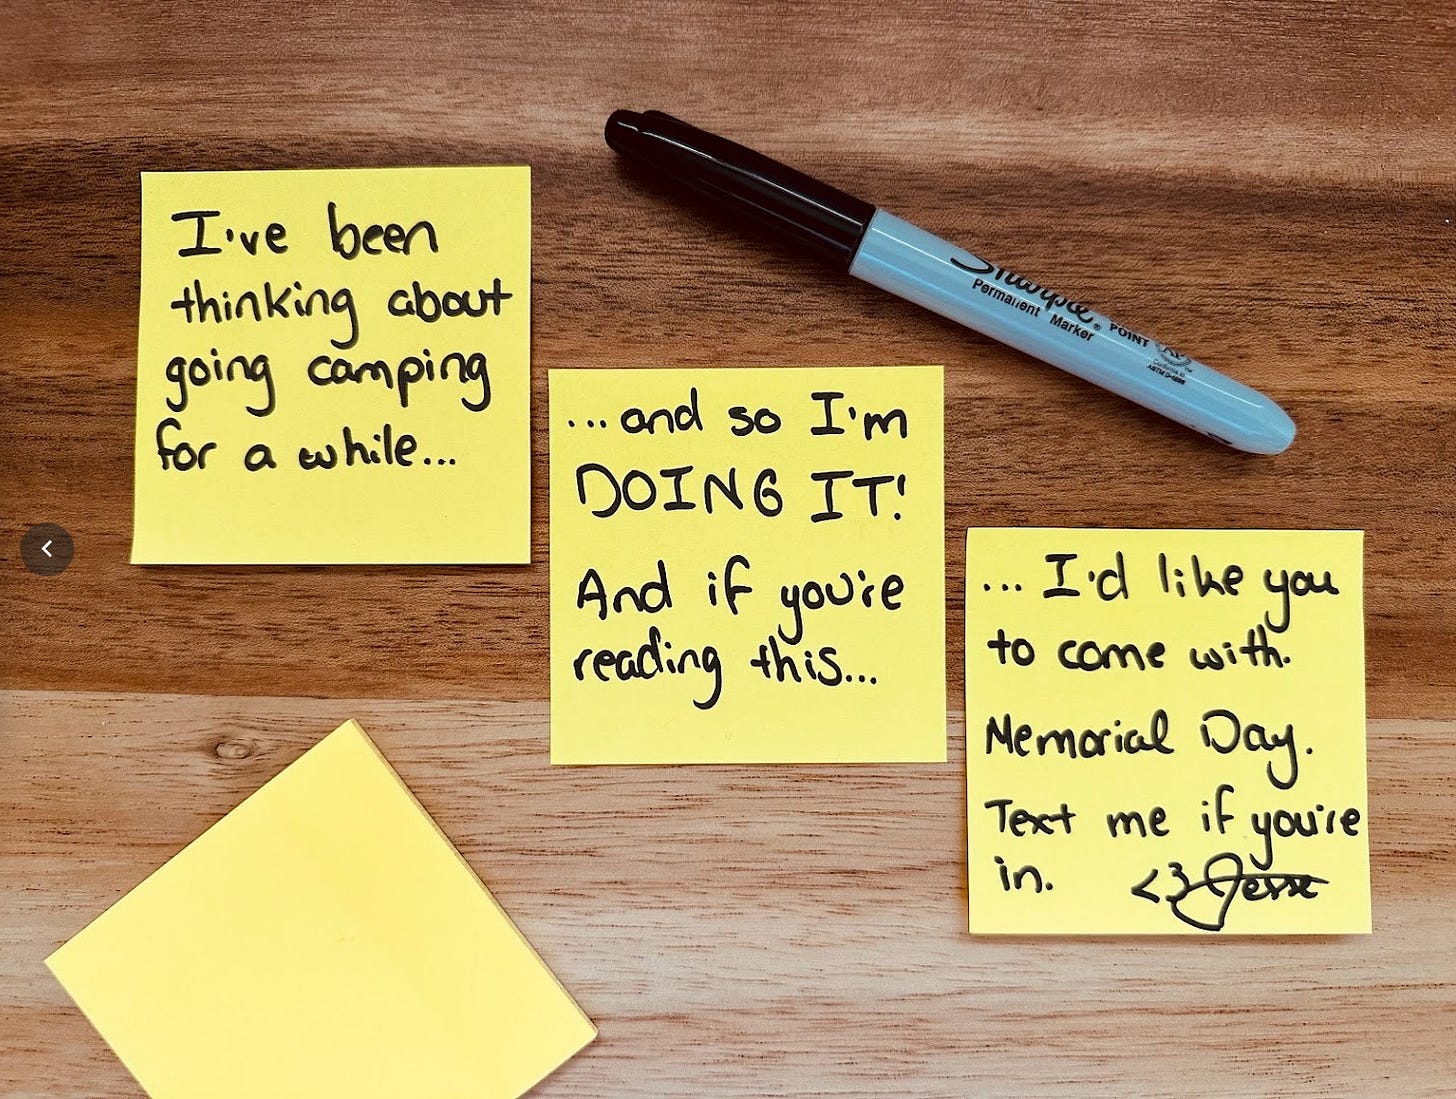 I've been
thinking about
going camping
for a while...
...and so I'm
DOING IT!
And if you're
reading this...
...I'd like you
to come with.
Memorial Day.
Text me if you're
in. <3 Jesse
Sharpie®
Permanent Marker
POINT